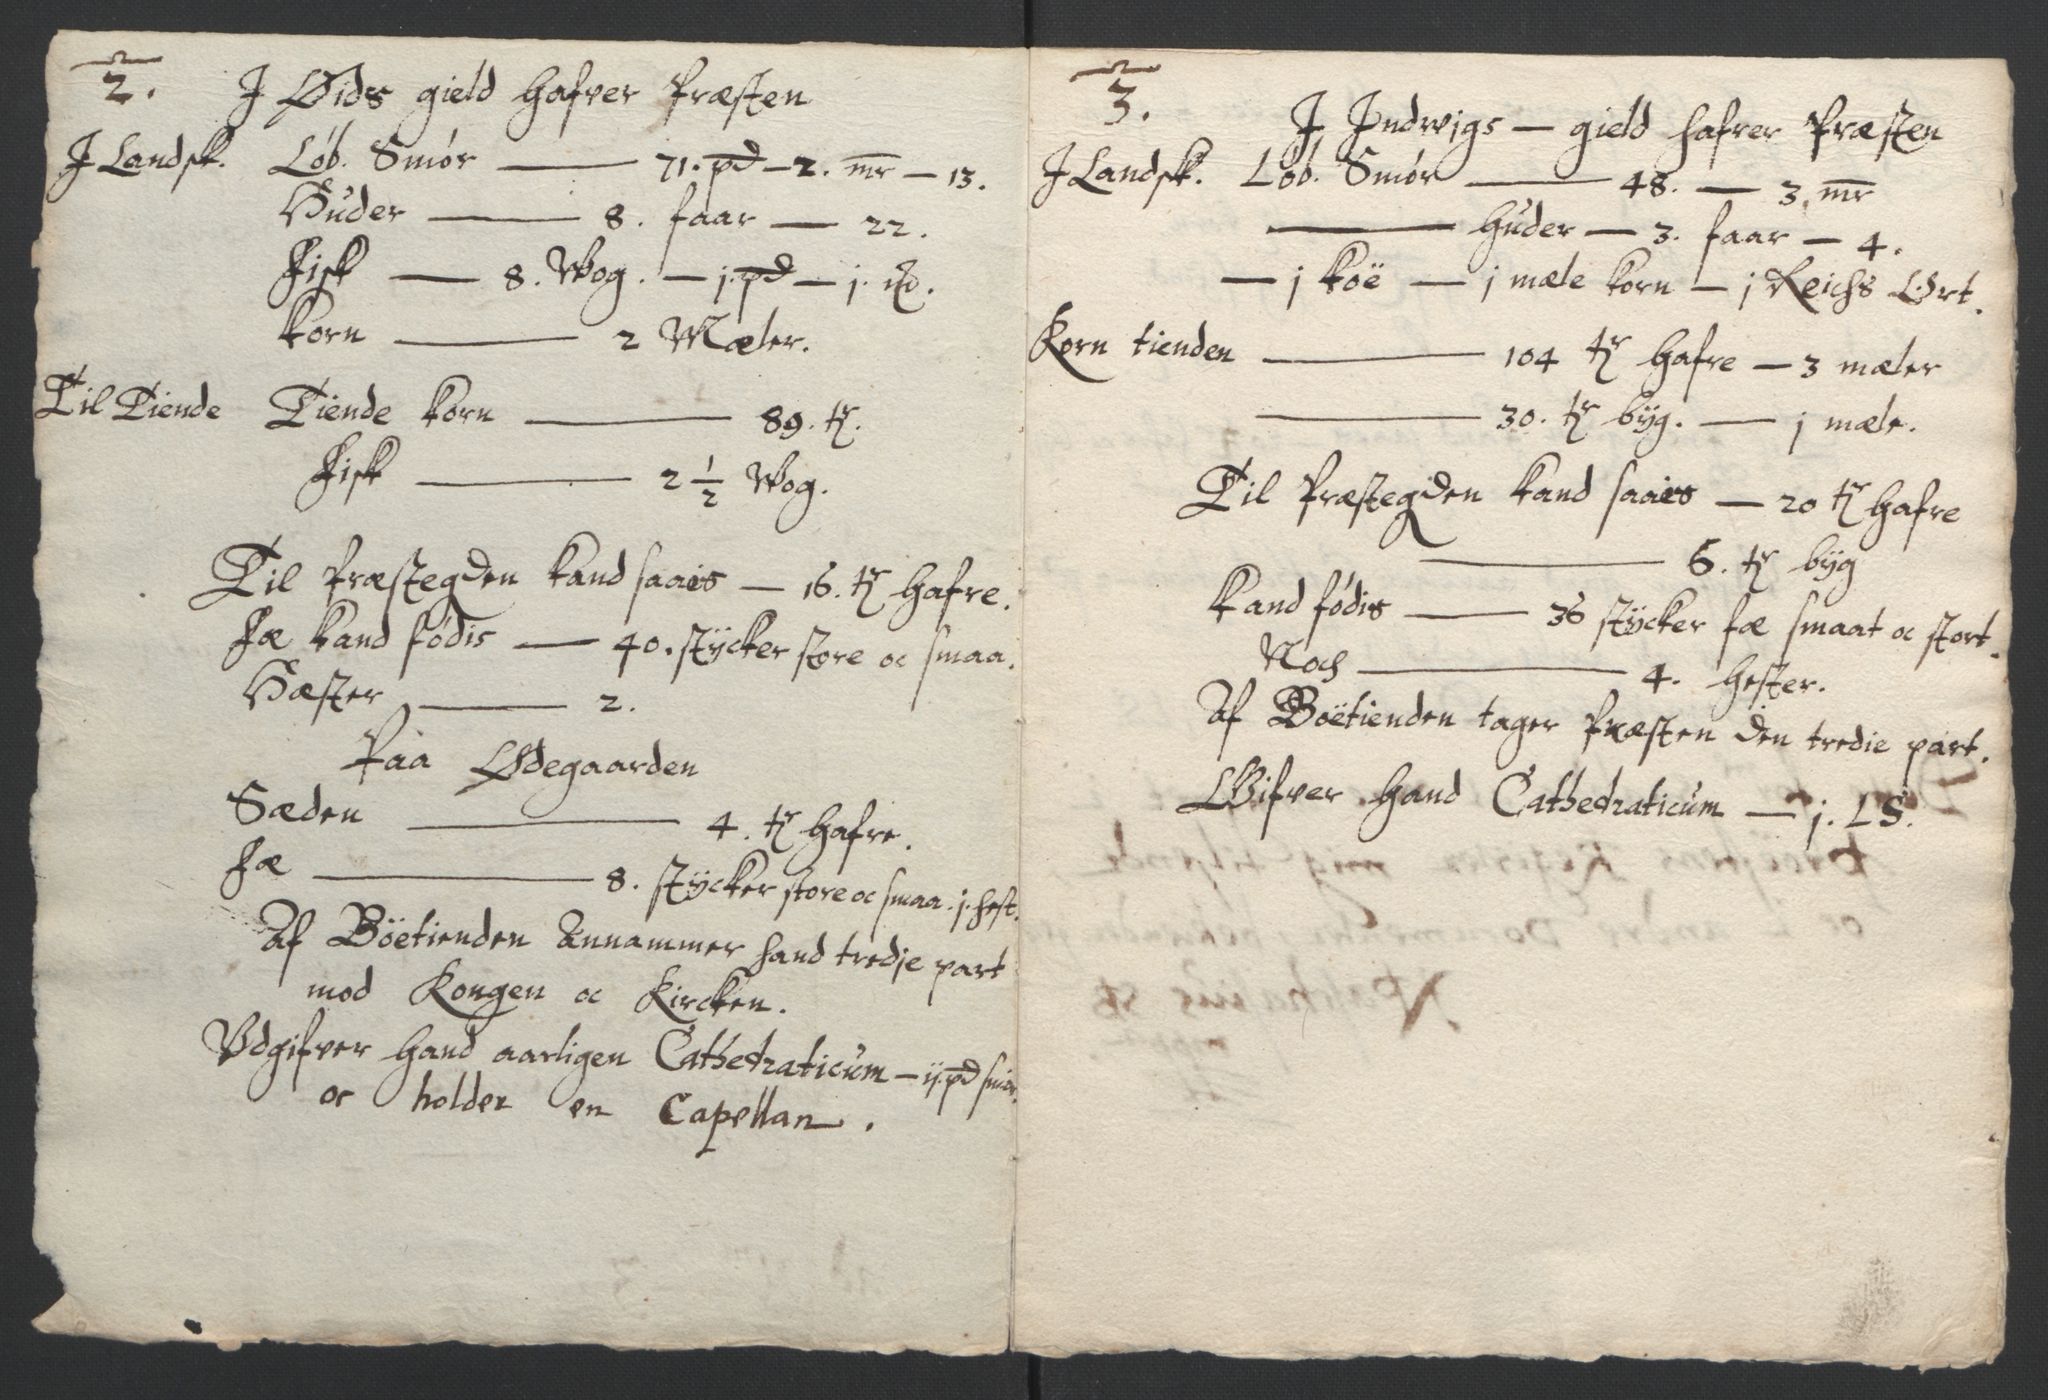 2.
J Øids gield hafver Præsten
J Landsk. Løb. Smør — 71. pd — 2. mr — 13.
Huder — 8. faar — 22.
Fisk — 8. Wog. — j. pd — j.
korn — 2 Mæler.
Til Tiende Tiende korn — 89. tr.
Fisk — 2 1/2 Wog.
Til Præstegden kand saaes — 16. tr hafre.
Fæ kand fødis — 40. stÿcker store oc smaa.
Hæster — 2.
Paa Ødegaarden
Sæden — 4. tr hafre.
Fæ — 8. stÿcker store oc smaa. j. hest.
Af Böetienden Annammer hand tredje part
mod Kongen oc Kircken.
Vdgifver hand aarligen Cathedraticum — ij. pd smør.
oc holder en Capellan.
3.
J Jndwigs — gield hafver Præsten
J Landsk. Løb. Smør — 48. — 3. mr
— Huder — 3. faar — 4.
— j koë — j mæle korn — j Reichs Ort.
Korn tienden — 104 tr hafre — 3 mæler
— 30. tr bÿg. — j mæle.
Til Præstegden kand saaes — 20 tr hafre
— 6. tr bÿg
kand fødis — 36 stÿcker fæ smaat oc stort.
Noch — 4. hester.
Af Boëtienden tager Præsten den tredie part.
Gifver hand Cathedraticum — j. LS.